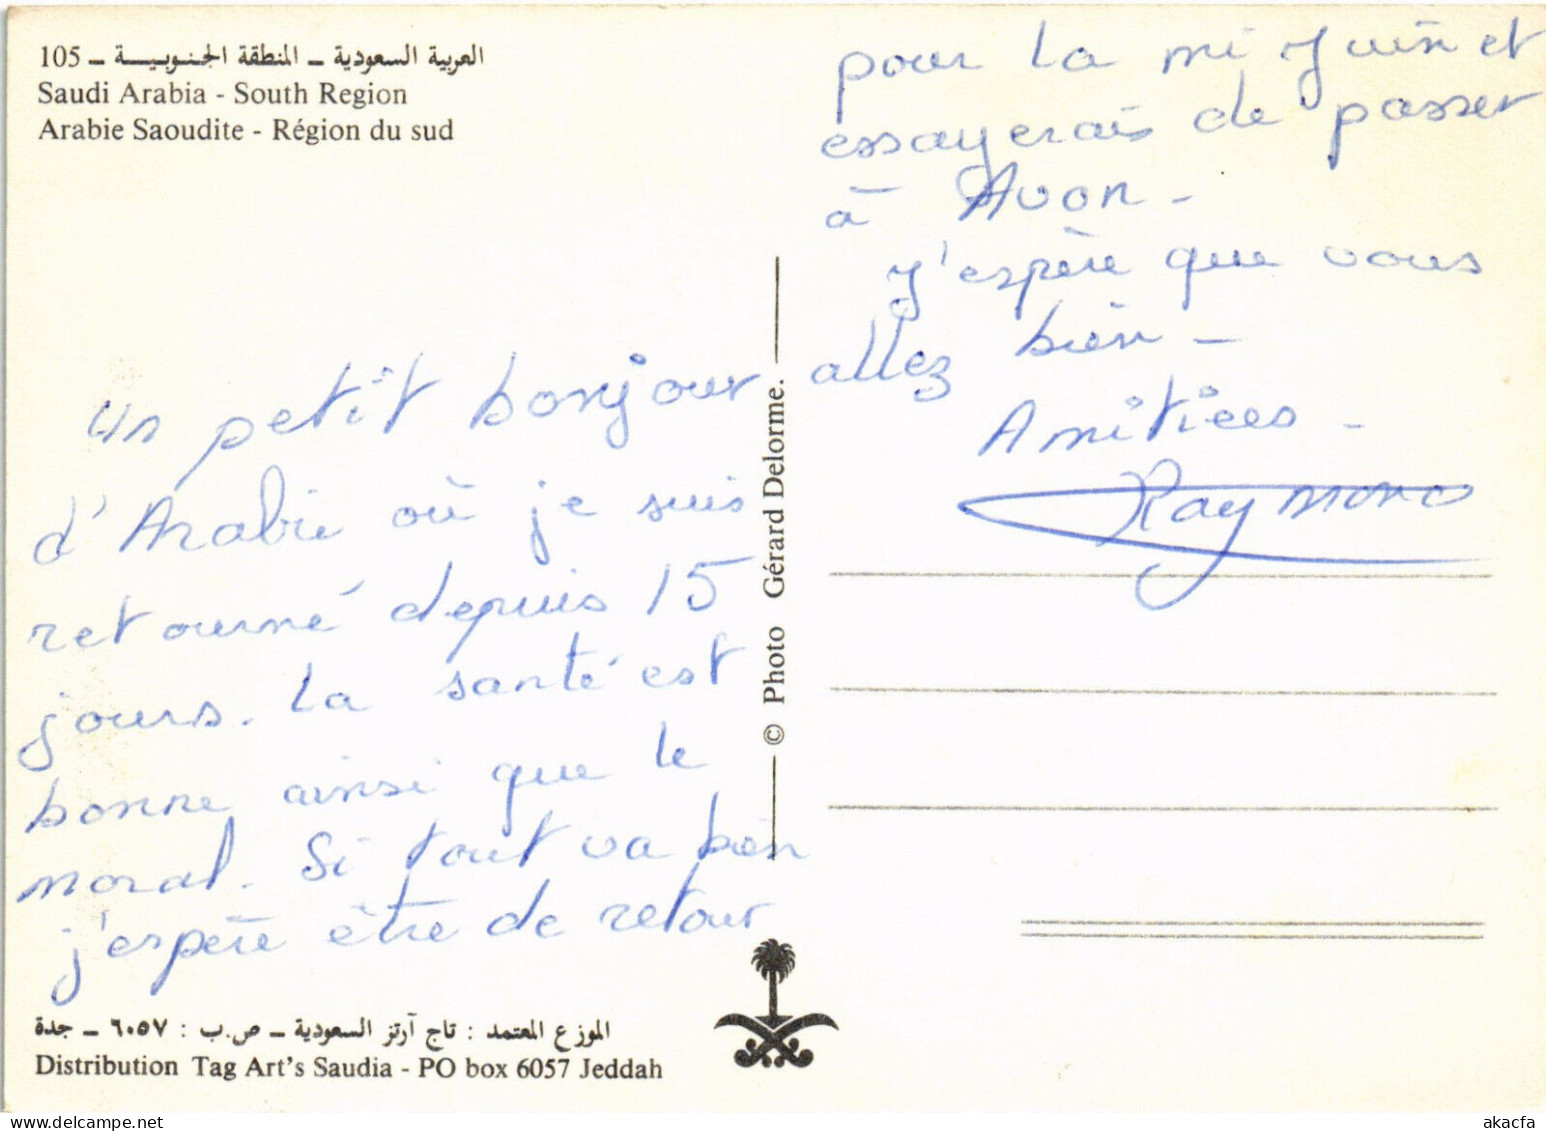 105 ـ العربية السعودية ـ المنطقة الجنوبية
Saudi Arabia - South Region
Arabie Saoudite - Région du sud
un petit bonjour
d'Arabie où je suis
retourné depuis 15
jours. La santé est
bonne ainsi que le
moral. Si tout va bien
j'espère être de retour
pour la mi Juin et
essayerais de passer
à Avon -
J'espère que vous
allez bien -
Amitiées -
Raymond
© Photo Gérard Delorme.
الموزع المعتمد : تاج آرتز السعودية ـ ص.ب : ٦٠٥٧ ـ جدة
Distribution Tag Art's Saudia - PO box 6057 Jeddah
akacfa